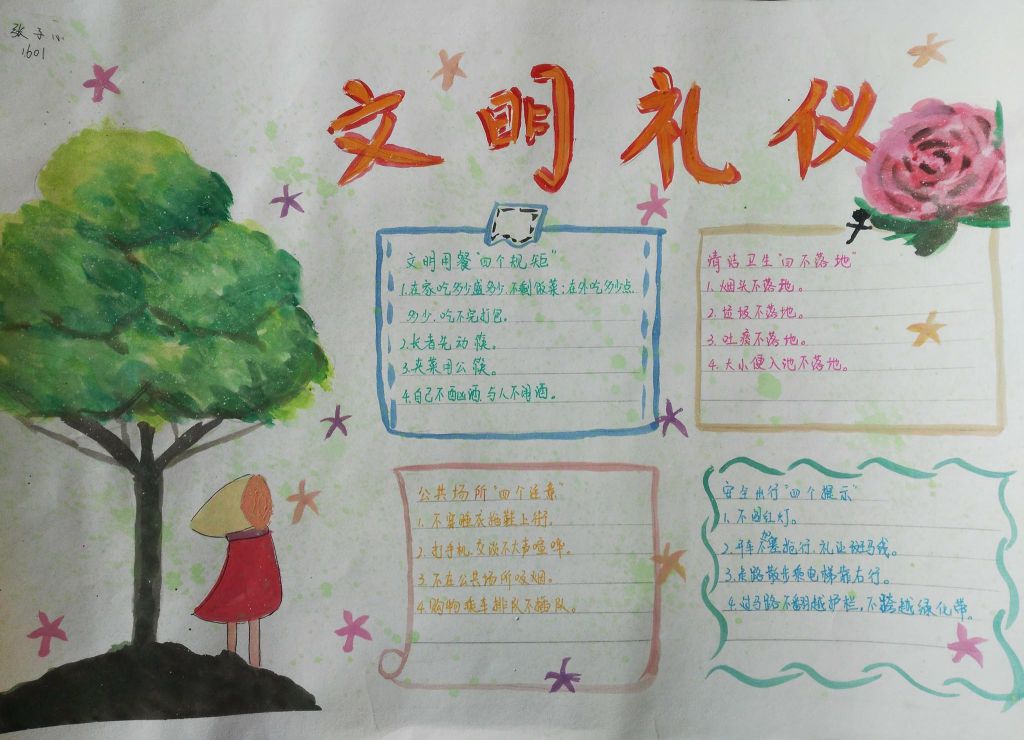 张子
1601
文明礼仪
文明用餐"四个规矩"
1.在家吃多少盛多少,不剩饭菜;在外吃多少点
多少,吃不完打包。
2.长者先动筷。
3.夹菜用公筷。
4.自己不酗酒,与人不闹酒。
清洁卫生"四不落地"
1.烟头不落地。
2.垃圾不落地。
3.吐痰不落地。
4.大小便入池不落地。
公共场所"四个注意"
1.不穿睡衣拖鞋上街。
2.打手机,交谈不大声喧哗。
3.不在公共场所吸烟。
4.购物乘车排队不插队。
安全出行"四个提示"
1.不闯红灯。
2.开车不抢行,礼让斑马线。
3.走路散步乘电梯靠右行。
4.过马路不翻越护栏,不跨越绿化带。